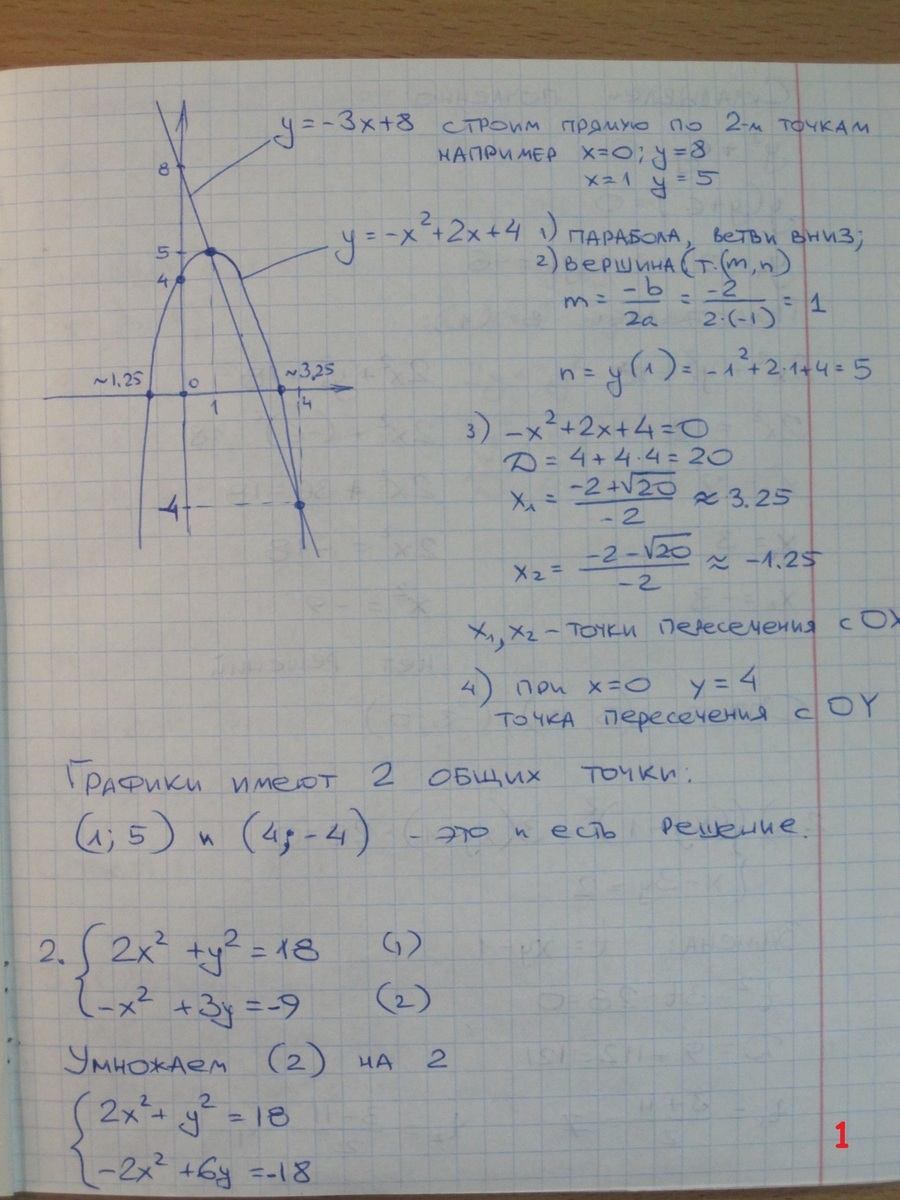 y = -3x+8 СТРОИМ ПРЯМУЮ ПО 2-М ТОЧКАМ
НАПРИМЕР x=0; y=8
x=1 y=5
8
5
4
~1.25
0
1
~3,25
4
-4
y = -x²+2x+4 1) ПАРАБОЛА, ВЕТВИ ВНИЗ;
2) ВЕРШИНА (Т.(m,n)
m = -b/2a = -2/2·(-1) = 1
n = y(1) = -1²+2·1+4=5
3) -x²+2x+4=0
D = 4+4·4=20
x₁ = -2+√20/-2 ≈ 3.25
x₂ = -2-√20/-2 ≈ -1.25
x₁, x₂ - ТОЧКИ ПЕРЕСЕЧЕНИЯ С OX
4) ПРИ x=0 y=4
ТОЧКА ПЕРЕСЕЧЕНИЯ С OY
ГРАФИКИ ИМЕЮТ 2 ОБЩИХ ТОЧКИ:
(1; 5) и (4; -4) - ЭТО И ЕСТЬ РЕШЕНИЕ.
2. { 2x² + y² = 18 (1)
-x² + 3y = -9 (2)
УМНОЖАЕМ (2) НА 2
{ 2x² + y² = 18
-2x² + 6y = -18
1